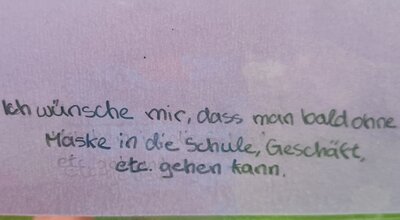 Ich wünsche mir, dass man bald ohne
Maske in die Schule, Geschäft,
etc. gehen kann.